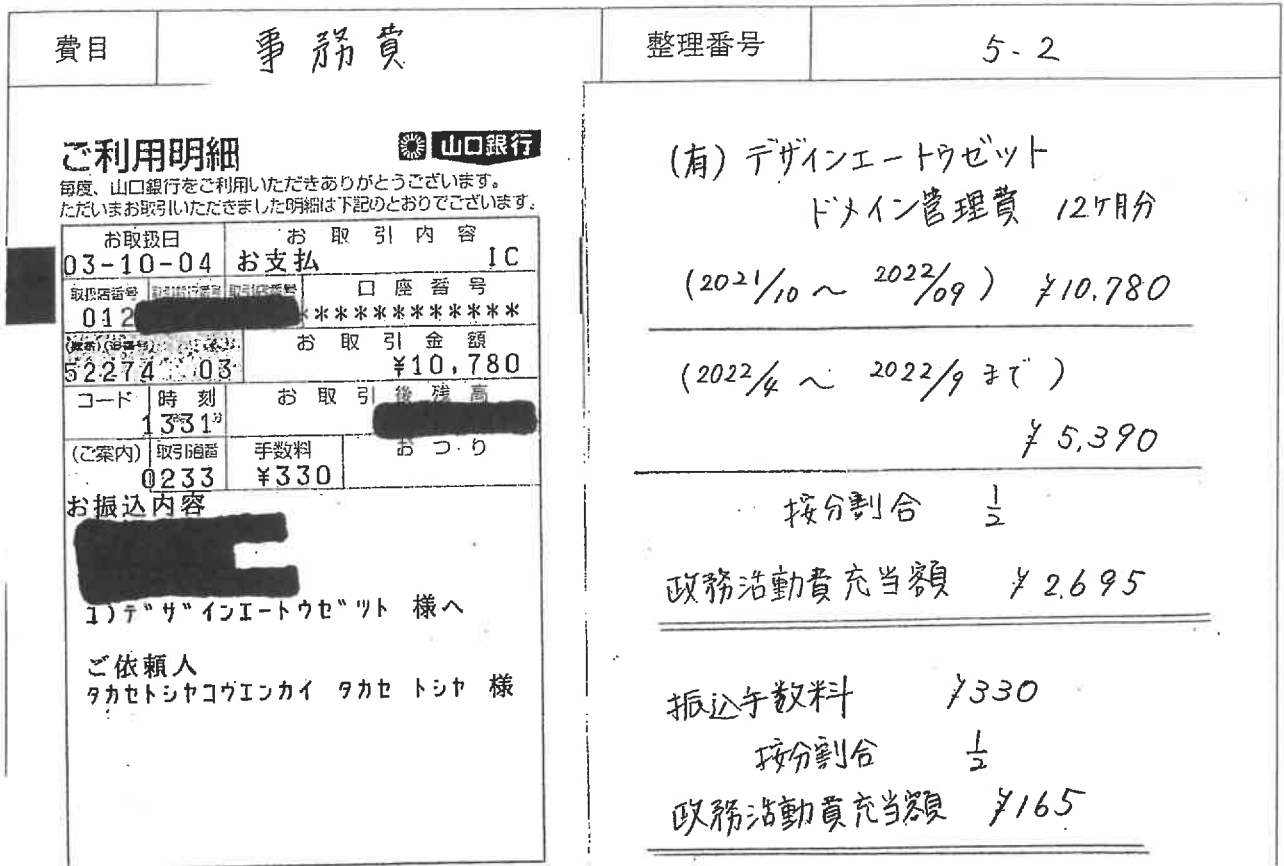 費目 事務費 整理番号 5-2
ご利用明細 山口銀行
毎度、山口銀行をご利用いただきありがとうございます。
ただいまお取引いただきました明細は下記のとおりでございます。
お取扱日 お取引内容
03-10-04 お支払 IC
取扱店番号 取引銀行番号 取引店番号 口座番号
012 ************
お取引金額
52274 03 ¥10,780
コード 時刻 お取引後残高
1331
(ご案内) 取引通番 手数料 おつり
0233 ¥330
お振込内容
ユ)デザインエートウゼツト 様へ
ご依頼人
タカセトシヤコウエンカイ タカセ トシヤ 様
(有)デザインエートゥゼット
ドメイン管理費 12ヶ月分
(2021/10 ~ 2022/09) ¥10,780
(2022/4 ~ 2022/9 まで)
¥5,390
按分割合 1/2
政務活動費充当額 ¥2,695
振込手数料 ¥330
按分割合 1/2
政務活動費充当額 ¥165